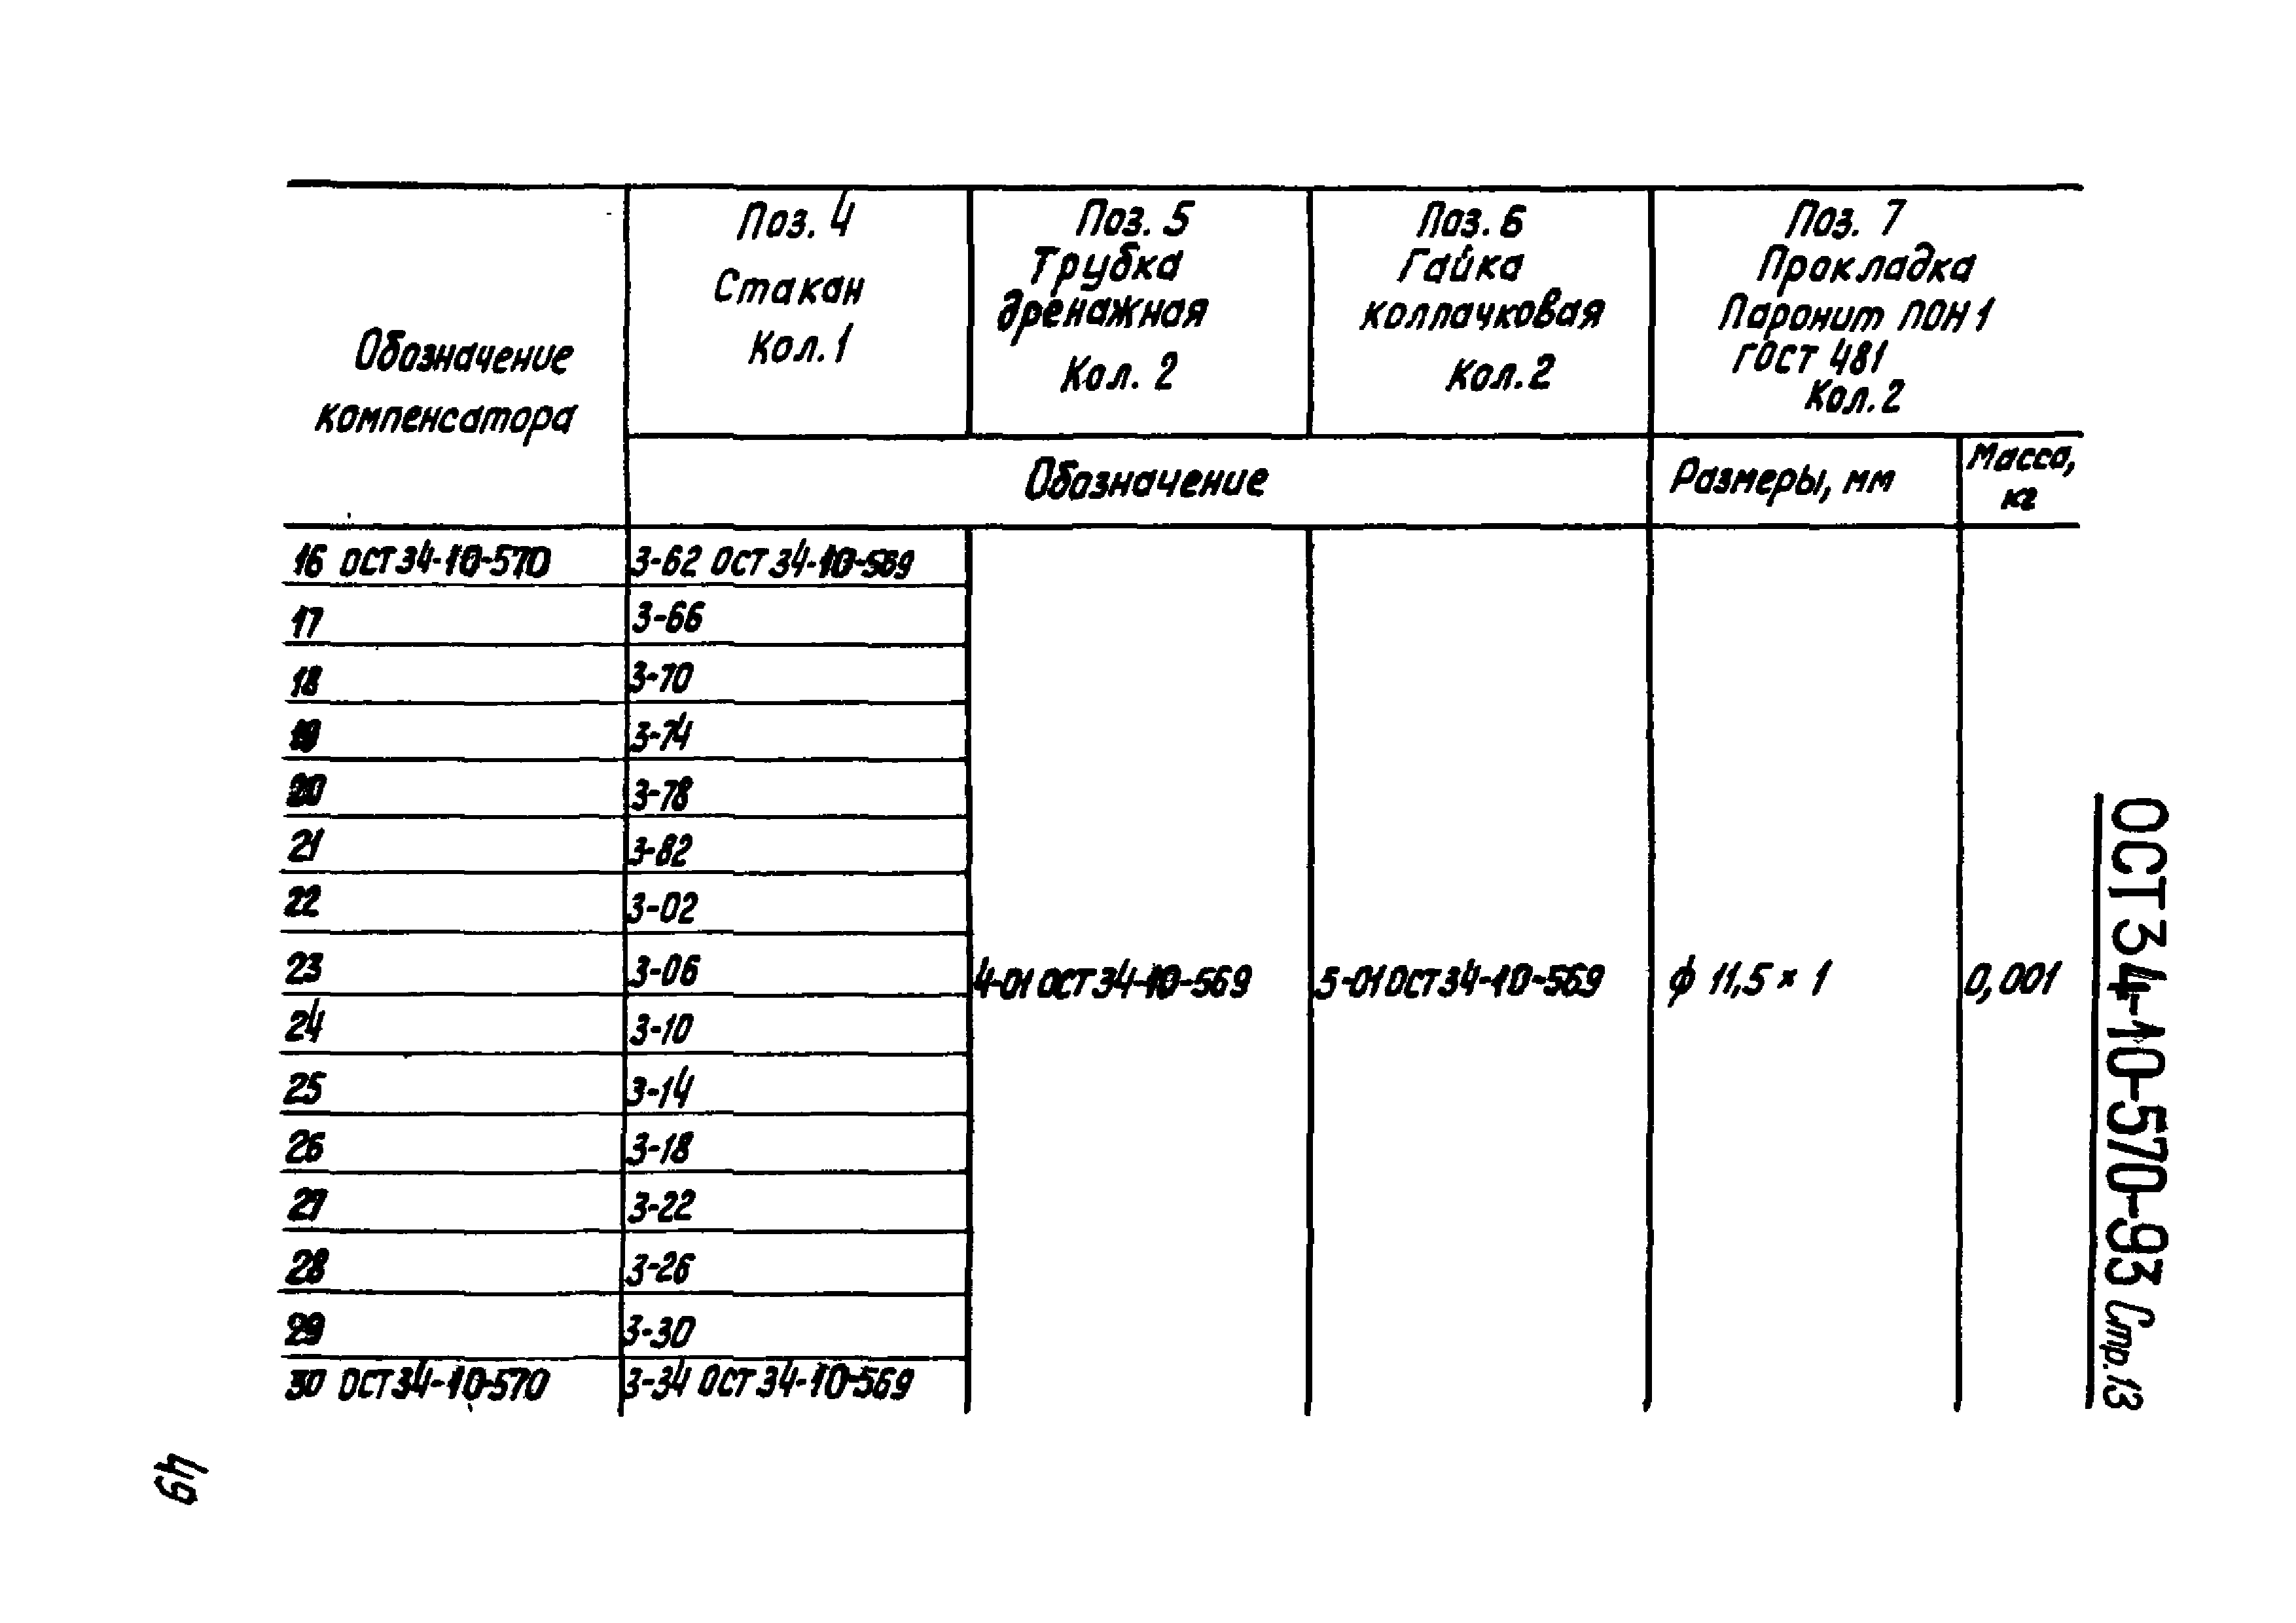 Обозначение
компенсатора
Поз. 4
Стакан
Кол. 1
Поз. 5
Трубка
дренажная
Кол. 2
Поз. 6
Гайка
колпачковая
Кол. 2
Поз. 7
Прокладка
Паронит ПОН 1
ГОСТ 481
Кол. 2
Обозначение
Размеры, мм
Масса,
кг
16 ОСТ 34-10-570 3-62 ОСТ 34-10-569
17 3-66
18 3-70
19 3-74
20 3-78
21 3-82
22 3-02
23 3-06
4-01 ОСТ 34-10-569 5-01 ОСТ 34-10-569 ф 11,5 × 1 0,001
24 3-10
25 3-14
26 3-18
27 3-22
28 3-26
29 3-30
30 ОСТ 34-10-570 3-34 ОСТ 34-10-569
ОСТ 34-10-570-93 Стр. 13
49